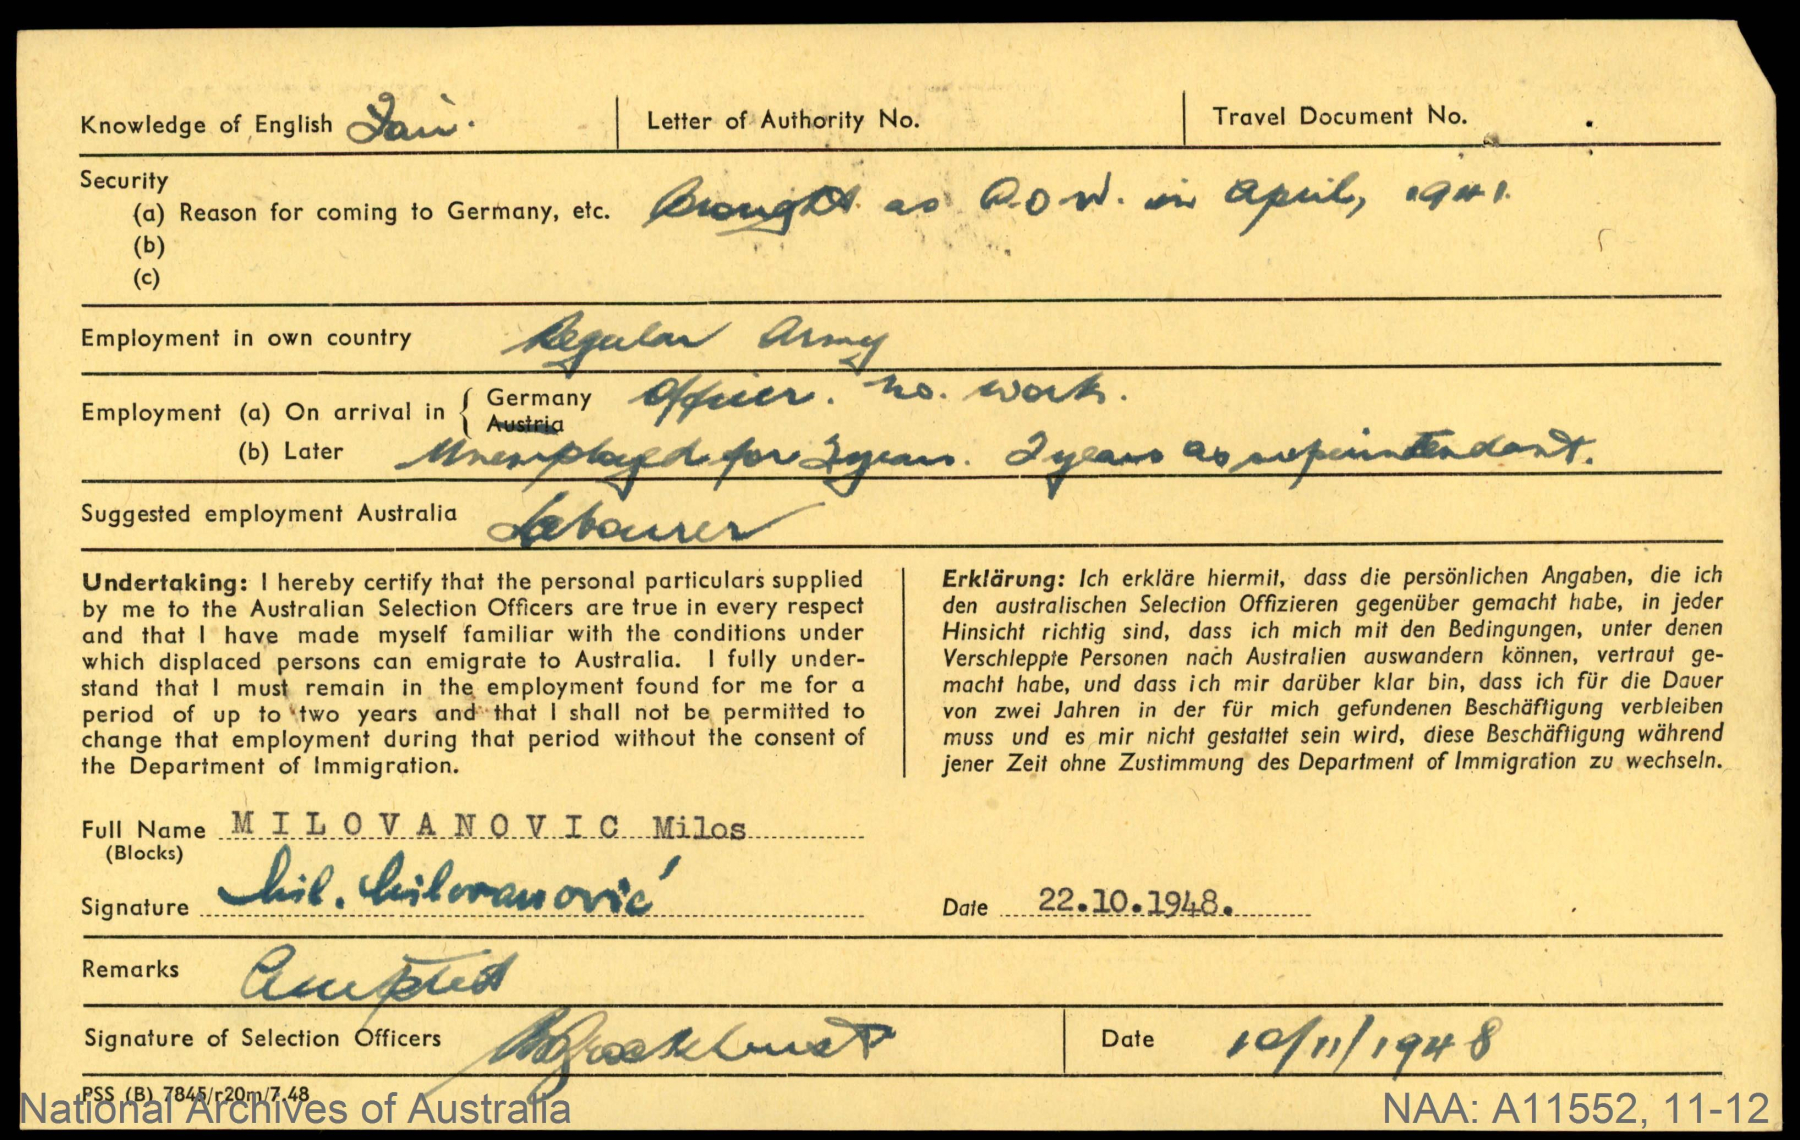 Knowledge of English Fair. Letter of Authority No. Travel Document No.
Security
(a) Reason for coming to Germany, etc. Brought as P.O.W. in April, 1941.
(b)
(c)
Employment in own country Regular Army
Employment (a) On arrival in { Germany Officer. No. work.
Austria
(b) Later Unemployed for 2 years. 2 years as superintendant.
Suggested employment Australia Labourer
Undertaking: I hereby certify that the personal particulars supplied
by me to the Australian Selection Officers are true in every respect
and that I have made myself familiar with the conditions under
which displaced persons can emigrate to Australia. I fully under-
stand that I must remain in the employment found for me for a
period of up to two years and that I shall not be permitted to
change that employment during that period without the consent of
the Department of Immigration.
Erklärung: Ich erkläre hiermit, dass die persönlichen Angaben, die ich
den australischen Selection Offizieren gegenüber gemacht habe, in jeder
Hinsicht richtig sind, dass ich mich mit den Bedingungen, unter denen
Verschleppte Personen nach Australien auswandern können, vertraut ge-
macht habe, und dass ich mir darüber klar bin, dass ich für die Dauer
von zwei Jahren in der für mich gefundenen Beschäftigung verbleiben
muss und es mir nicht gestattet sein wird, diese Beschäftigung während
jener Zeit ohne Zustimmung des Department of Immigration zu wechseln.
Full Name MILOVANOVIC Milos
(Blocks)
Signature Mil. Milovanović Date 22.10.1948.
Remarks Accepted
Signature of Selection Officers Date 10/11/1948
PSS (B) 7845/r20m/7.48
National Archives of Australia NAA: A11552, 11-12